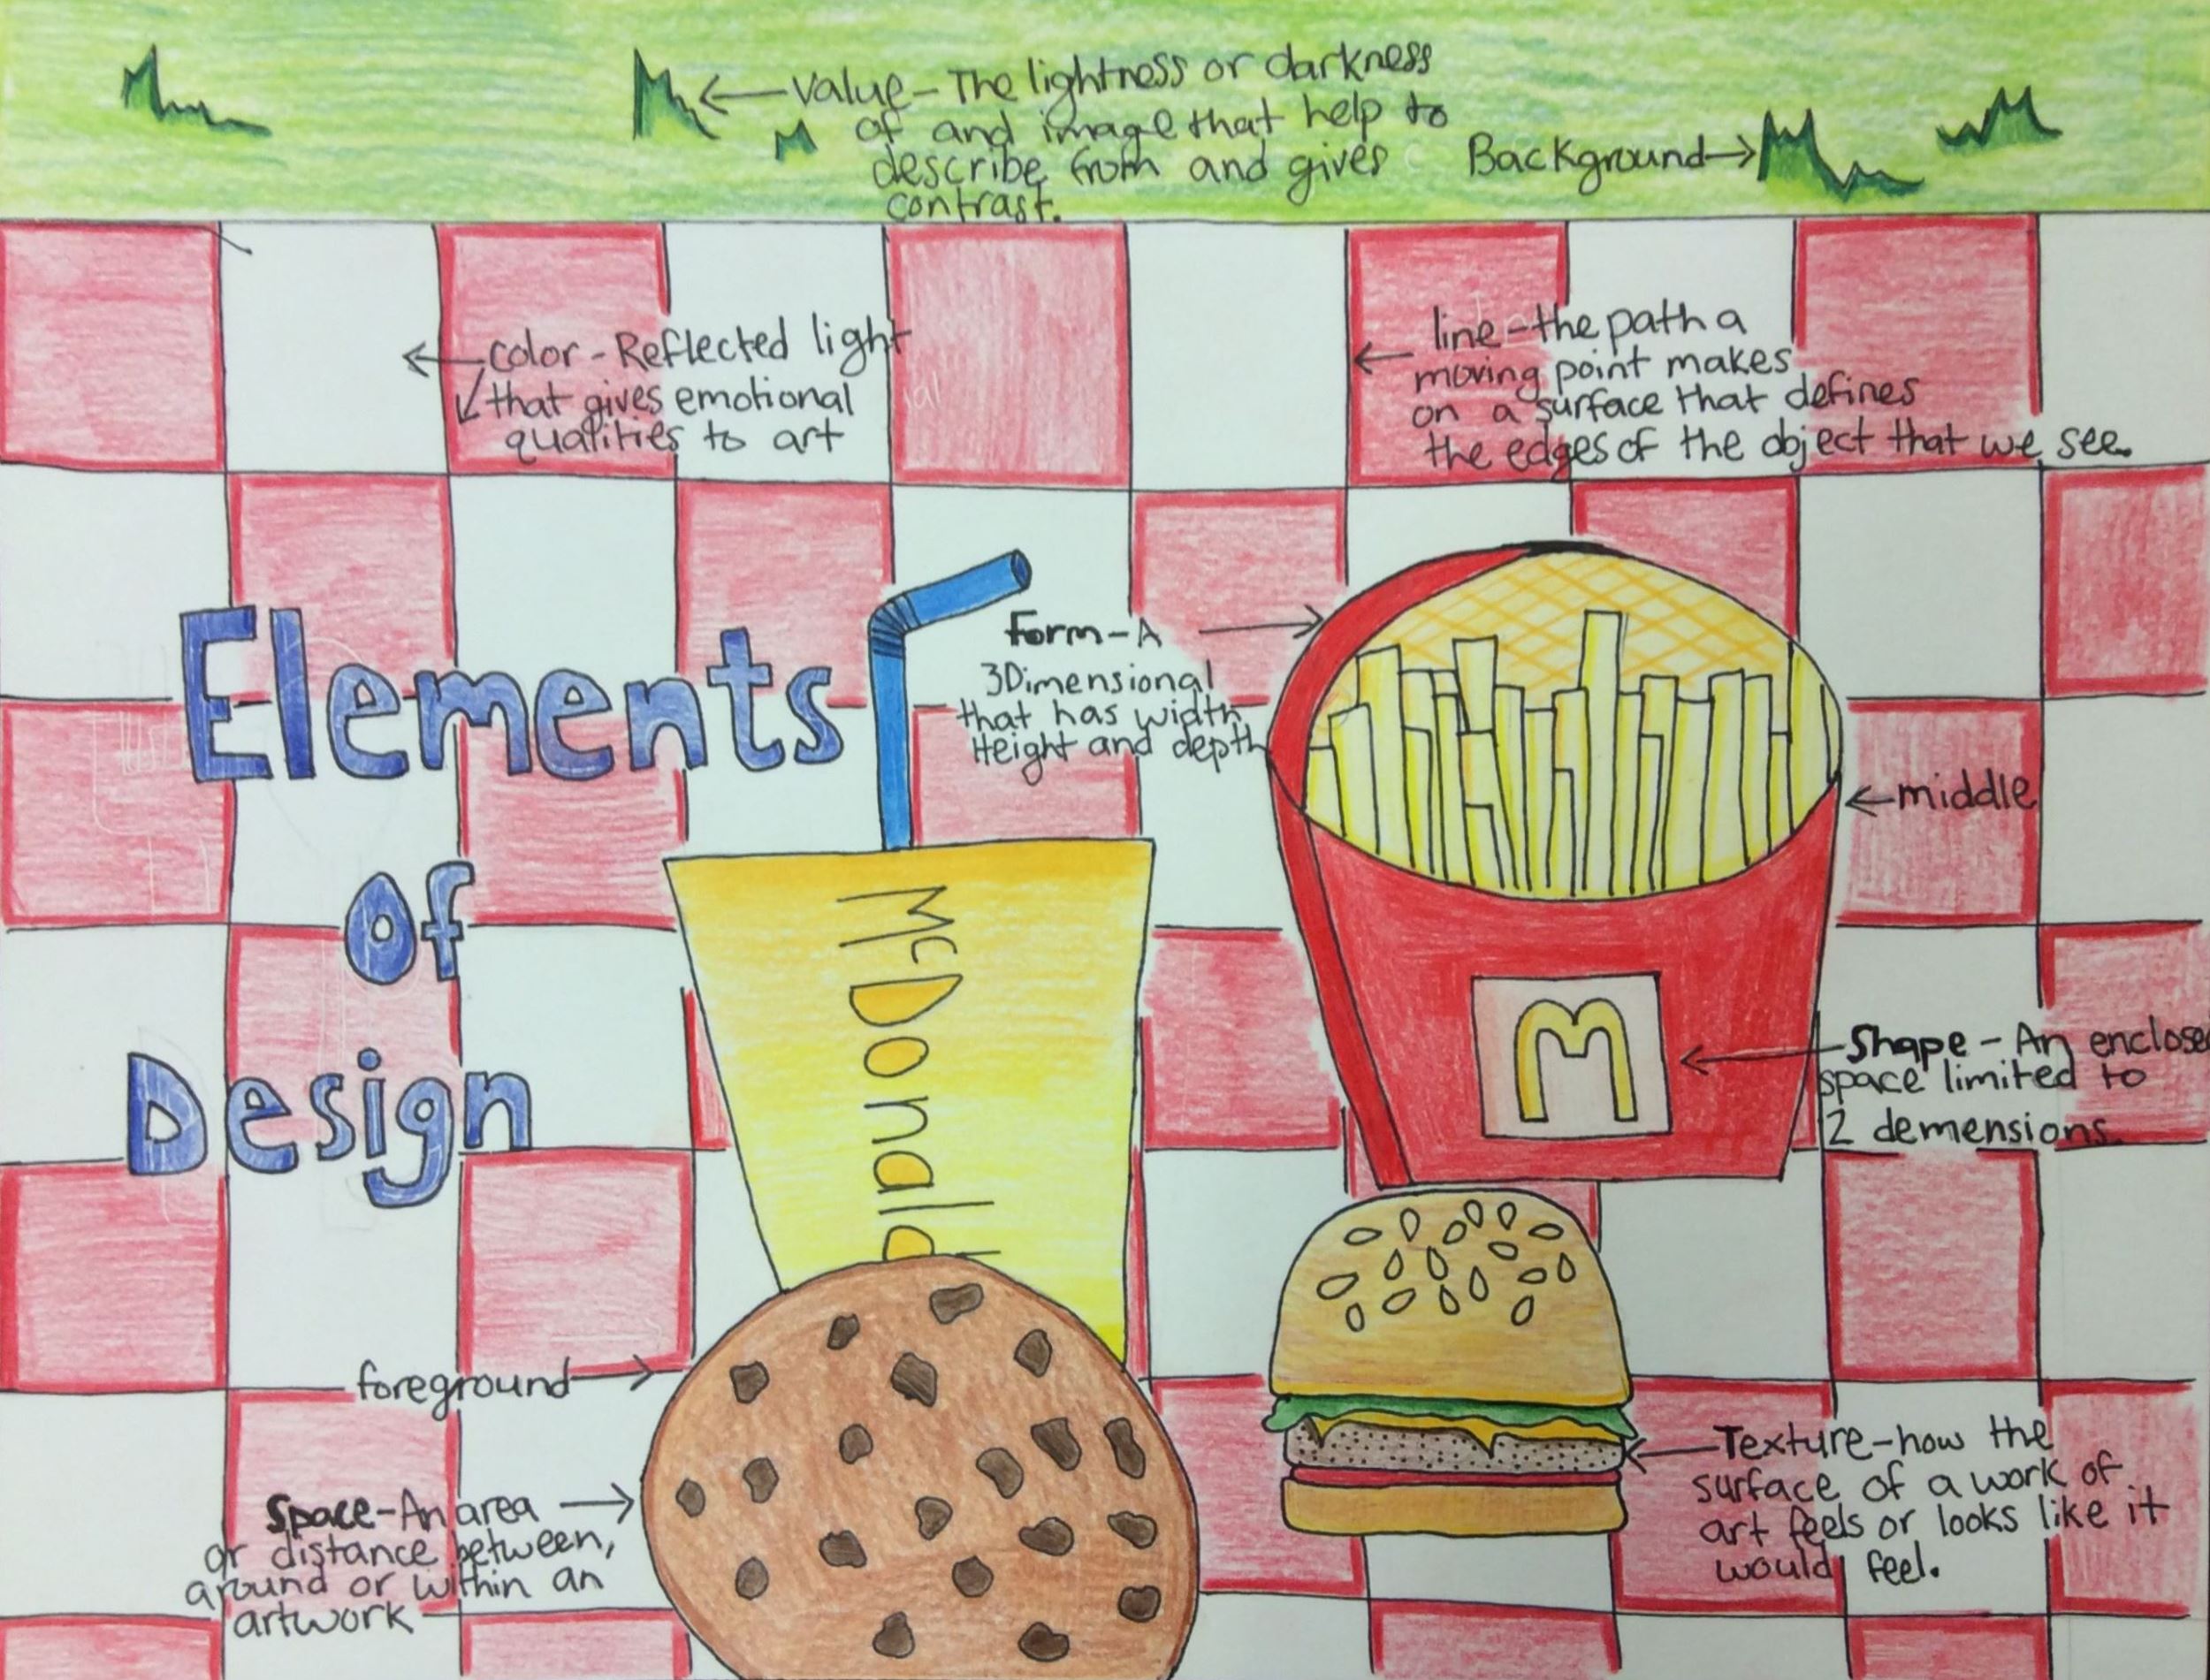 Value - The lightness or darkness
of and image that help to
describe from and gives
contrast.
Background
color - Reflected light
that gives emotional
qualities to art
line - the path a
moving point makes
on a surface that defines
the edges of the object that we see.
Elements
of
Design
Form - A
3Dimensional
that has width
Height and depth
middle
McDonald
M
Shape - An enclose
space limited to
2 demensions.
foreground
Space - An area
or distance between,
around or within an
artwork
Texture - how the
surface of a work of
art feels or looks like it
would feel.